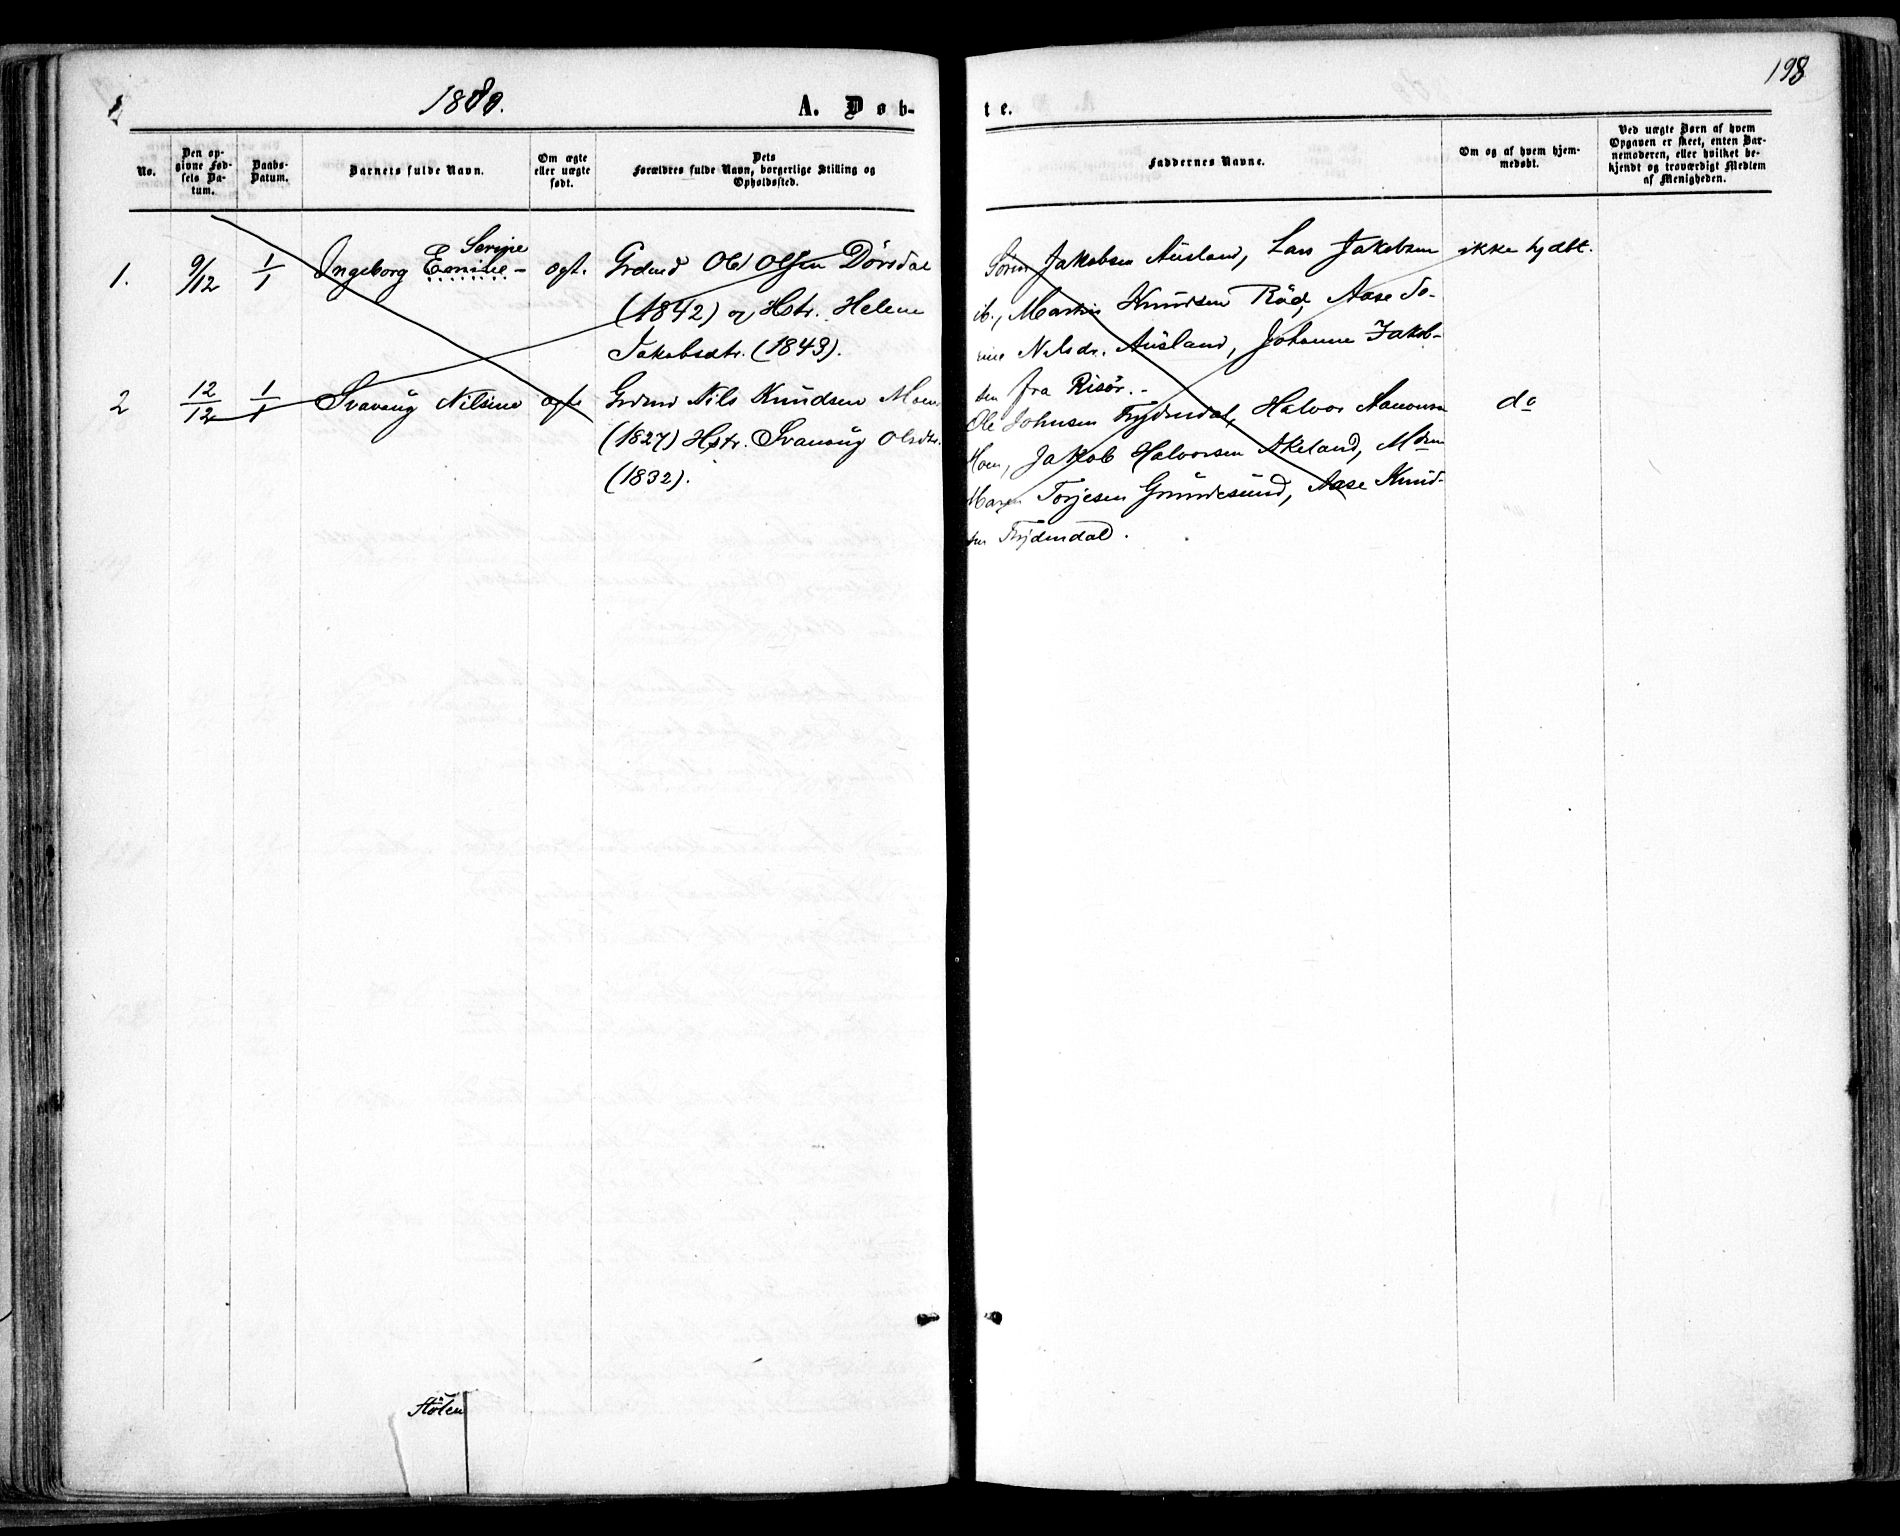 1880.
A. Døb-
te.
198
No.
Den op-
givne Fød-
sels Da-
tum.
Daabs-
Datum.
Barnets fulde Navn.
Om ægte
eller uægte
født.
Dets
Forældres fulde Navn, borgerlige Stilling og
Opholdssted.
Faddernes Navne.
Om og af hvem hjem-
medøbt.
Ved uægte Børn af hvem
Opgaven er skeet, enten Bar-
nemoderen, eller hvilket be-
kjendt og troværdigt Medlem
af Menigheden.
Serine
1. 9/12 1/1 Ingeborg Emilie - ægt. Grdmd Ole Olsen Dørsdal
(1842) og Hstr. Helene
Jakobsdtr. (1843).
Sören Jakobsen Ausland, Lars Jakobsen ikke hjdbt.
ib., Martin Knudsen Röd, Aase To-
rine Nilsdr. Ausland, Johanne Jakob-
sen fra Risör.
2 12/12 1/1 Svanaug Nilsine ægte Grdmd Nils Knudsen Moen
(1827) Hstr. Svanaug Olsdtr.
(1832).
Ole Johnsen Frydendal, Halvor Aanonsen do
Moen, Jakob Halvorsen Akeland,
Maren Torjesen Grundesund, Aase Knud-
sen Frydendal.
Stölen